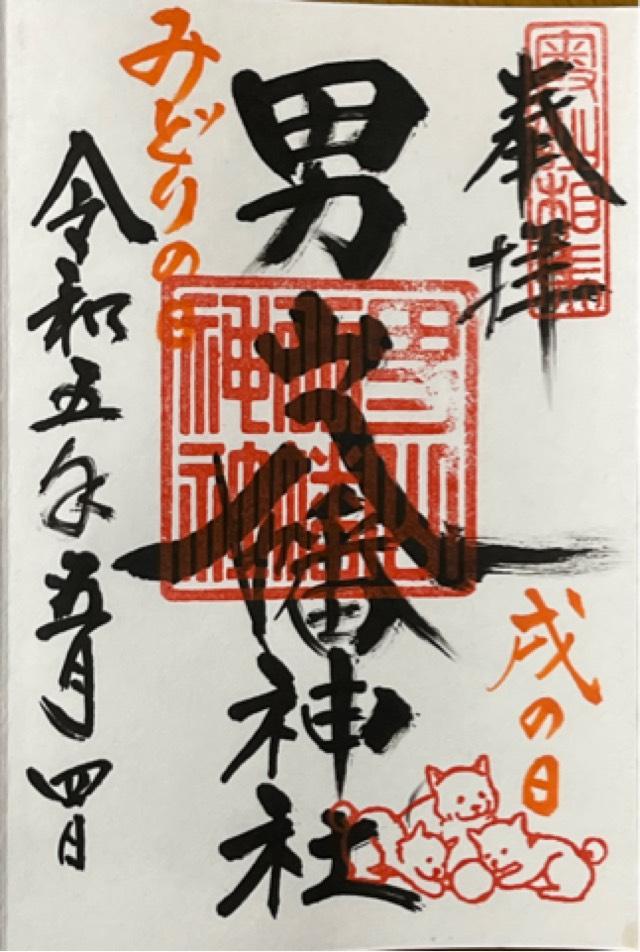 奉拝
男山八幡神社
みどりの日
令和五年五月四日
戌の日